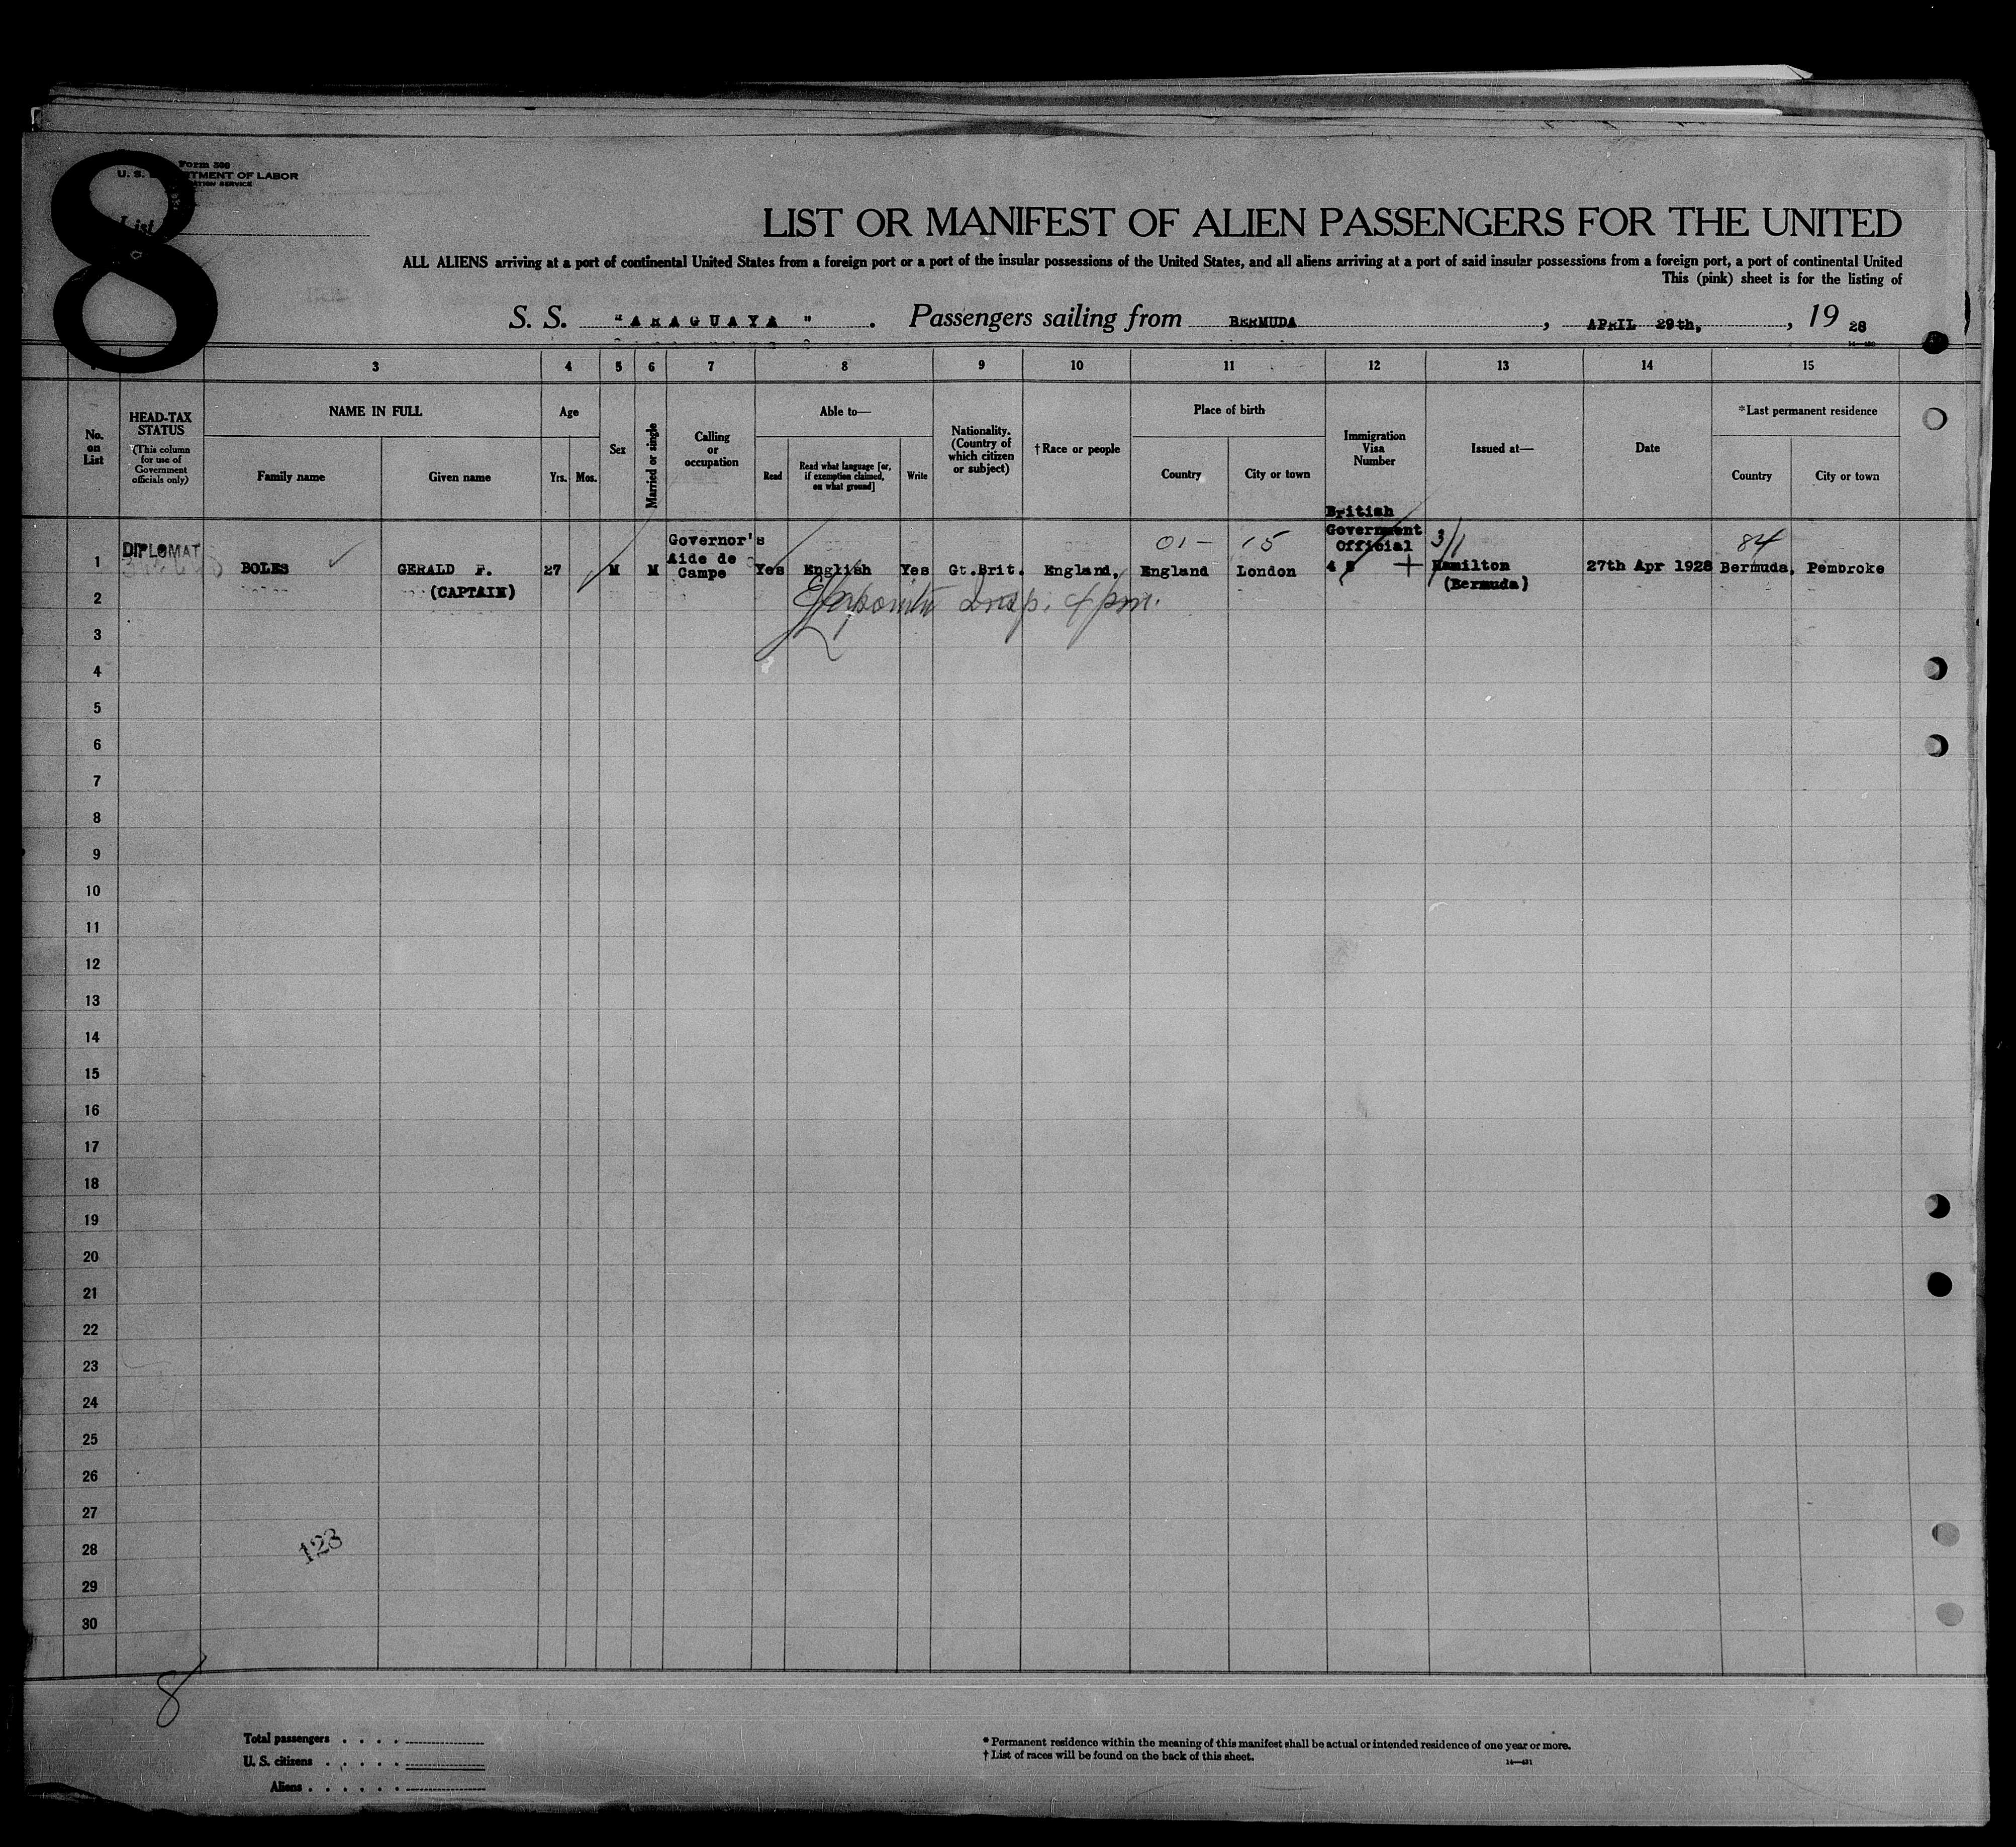 8
Form 500
U. S. DEPARTMENT OF LABOR
List
LIST OR MANIFEST OF ALIEN PASSENGERS FOR THE UNITED
ALL ALIENS arriving at a port of continental United States from a foreign port or a port of the insular possessions of the United States, and all aliens arriving at a port of said insular possessions from a foreign port, a port of continental United
This (pink) sheet is for the listing of
S. S. "ARAGUAYA". Passengers sailing from BERMUDA, APRIL 29th, 1928
3 4 5 6 7 8 9 10 11 12 13 14 15
No. on List
HEAD-TAX STATUS
(This column for use of Government officials only)
NAME IN FULL
Family name
Given name
Age
Yrs.
Mos.
Sex
Married or single
Calling or occupation
Able to—
Read
Read what language [or, if exemption claimed, on what ground]
Write
Nationality. (Country of which citizen or subject)
† Race or people
Place of birth
Country
City or town
Immigration Visa Number
Issued at—
Date
*Last permanent residence
Country
City or town
British
Government
Official
DIPLOMAT
Governor's
Aide de
Campe
01- 15
3/1
84
1 BOLES GERALD F. 27 M M Yes English Yes Gt.Brit. England, England London 4 Hamilton 27th Apr 1928 Bermuda, Pembroke
(CAPTAIN)
(Bermuda)
Insp. 4 pm.
2
3
4
5
6
7
8
9
10
11
12
13
14
15
16
17
18
19
20
21
22
23
24
25
26
27
28
29
30
123
8
Total passengers
U. S. citizens
Aliens
* Permanent residence within the meaning of this manifest shall be actual or intended residence of one year or more.
† List of races will be found on the back of this sheet.
14—431